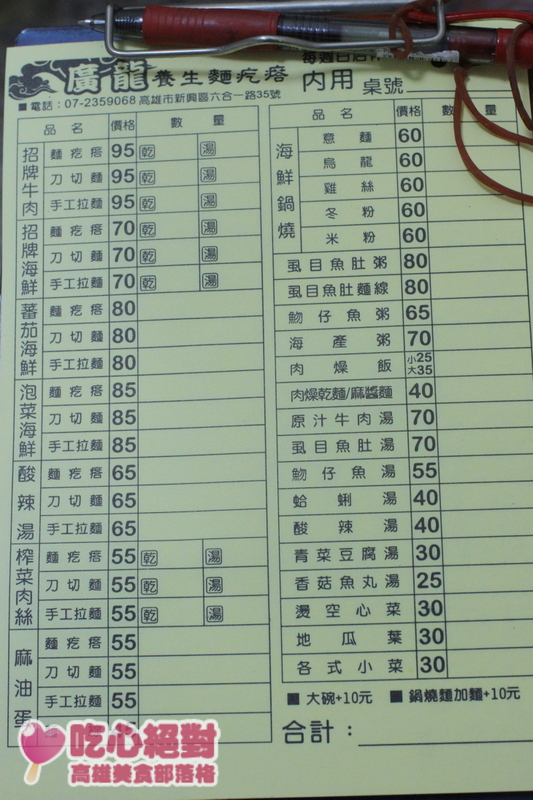 廣龍養生麵疙瘩
內用 桌號
■電話：07-2359068 高雄市新興區六合一路35號
品名 價格 數量
招牌牛肉
麵疙瘩 95 乾 湯
刀切麵 95 乾 湯
手工拉麵 95 乾 湯
招牌海鮮
麵疙瘩 70 乾 湯
刀切麵 70 乾 湯
手工拉麵 70 乾 湯
蕃茄海鮮
麵疙瘩 80
刀切麵 80
手工拉麵 80
泡菜海鮮
麵疙瘩 85
刀切麵 85
手工拉麵 85
酸辣湯
麵疙瘩 65
刀切麵 65
手工拉麵 65
榨菜肉絲
麵疙瘩 55 乾 湯
刀切麵 55 乾 湯
手工拉麵 55 乾 湯
麻油蛋
麵疙瘩 55
刀切麵 55
手工拉麵 55
品名 價格 數量
海鮮鍋燒
意麵 60
烏龍 60
雞絲 60
冬粉 60
米粉 60
虱目魚肚粥 80
虱目魚肚麵線 80
魩仔魚粥 65
海產粥 70
肉燥飯 小25 大35
肉燥乾麵/麻醬麵 40
原汁牛肉湯 70
虱目魚肚湯 70
魩仔魚湯 55
蛤蜊湯 40
酸辣湯 40
青菜豆腐湯 30
香菇魚丸湯 25
燙空心菜 30
地瓜葉 30
各式小菜 30
■ 大碗+10元 ■ 鍋燒麵加麵+10元
合計：
吃心絕對
高雄美食部落格